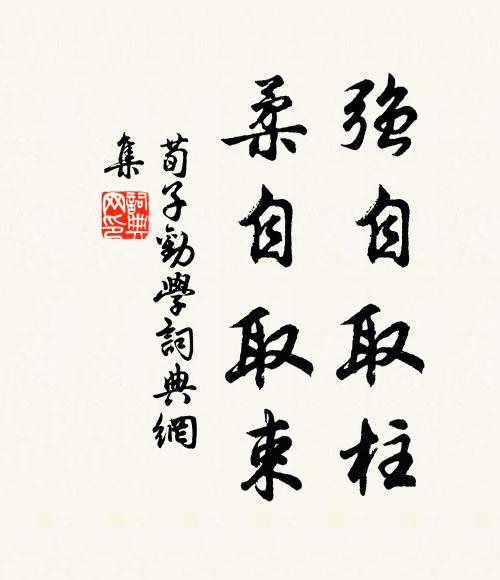 强自取柱
柔自取束
荀子勸學詞典網
集
詞典網印